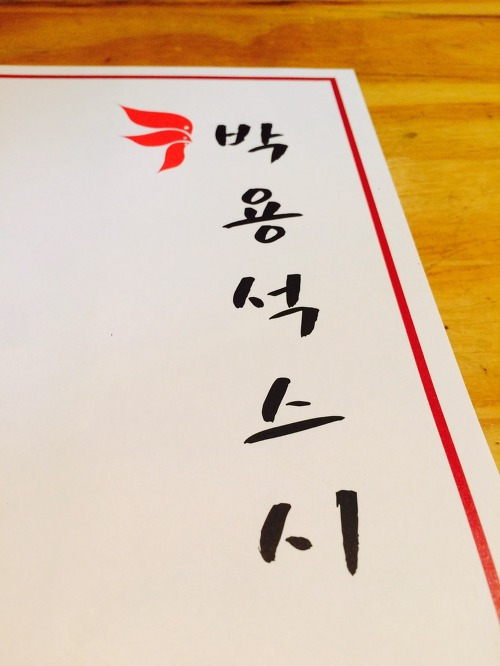 박용석스시